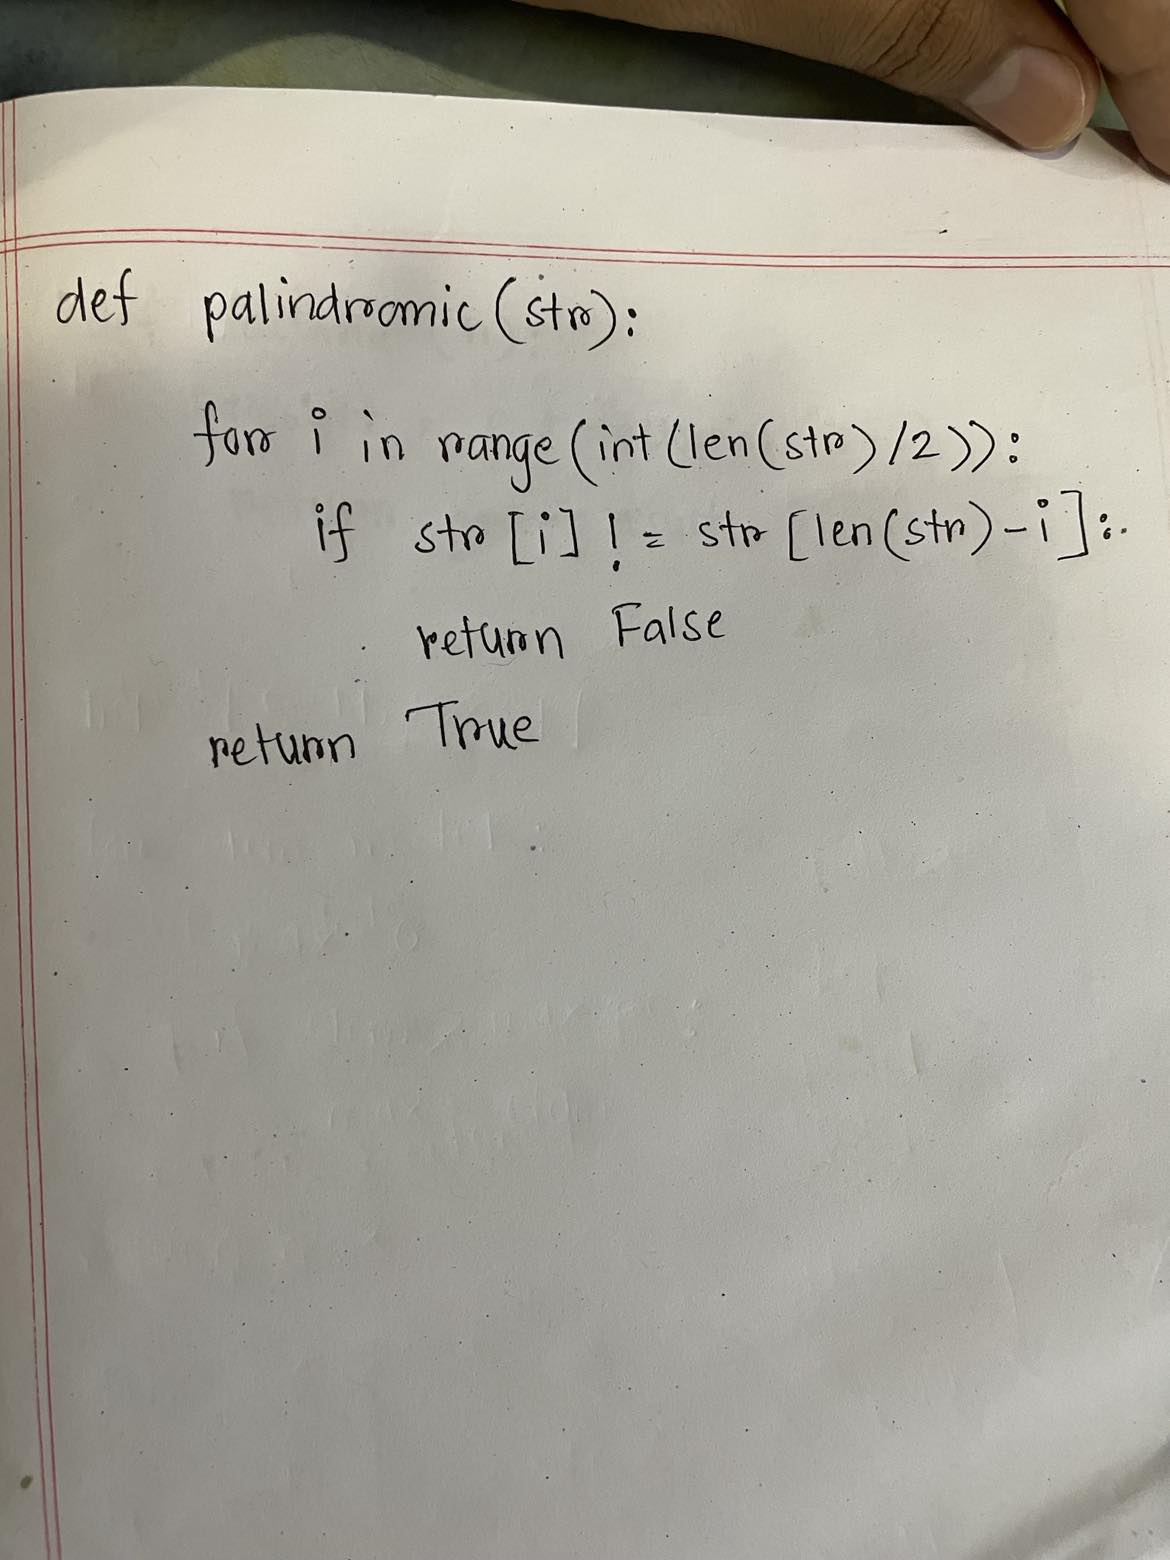 def palindromic(str):
for i in range(int(len(str)/2)):
if str[i] != str[len(str)-i]:
return False
return True